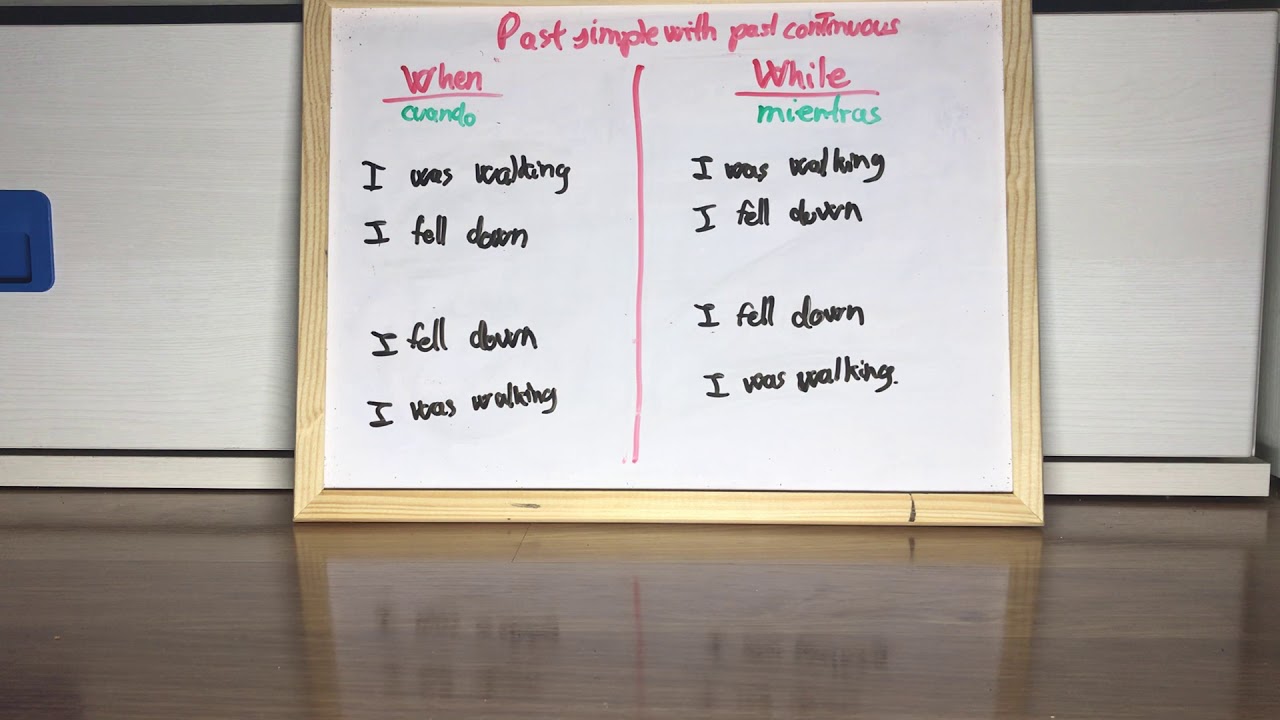 Past simple with past continuous
When
cuando
I was walking
I fell down
I fell down
I was walking
While
mientras
I was walking
I fell down
I fell down
I was walking.